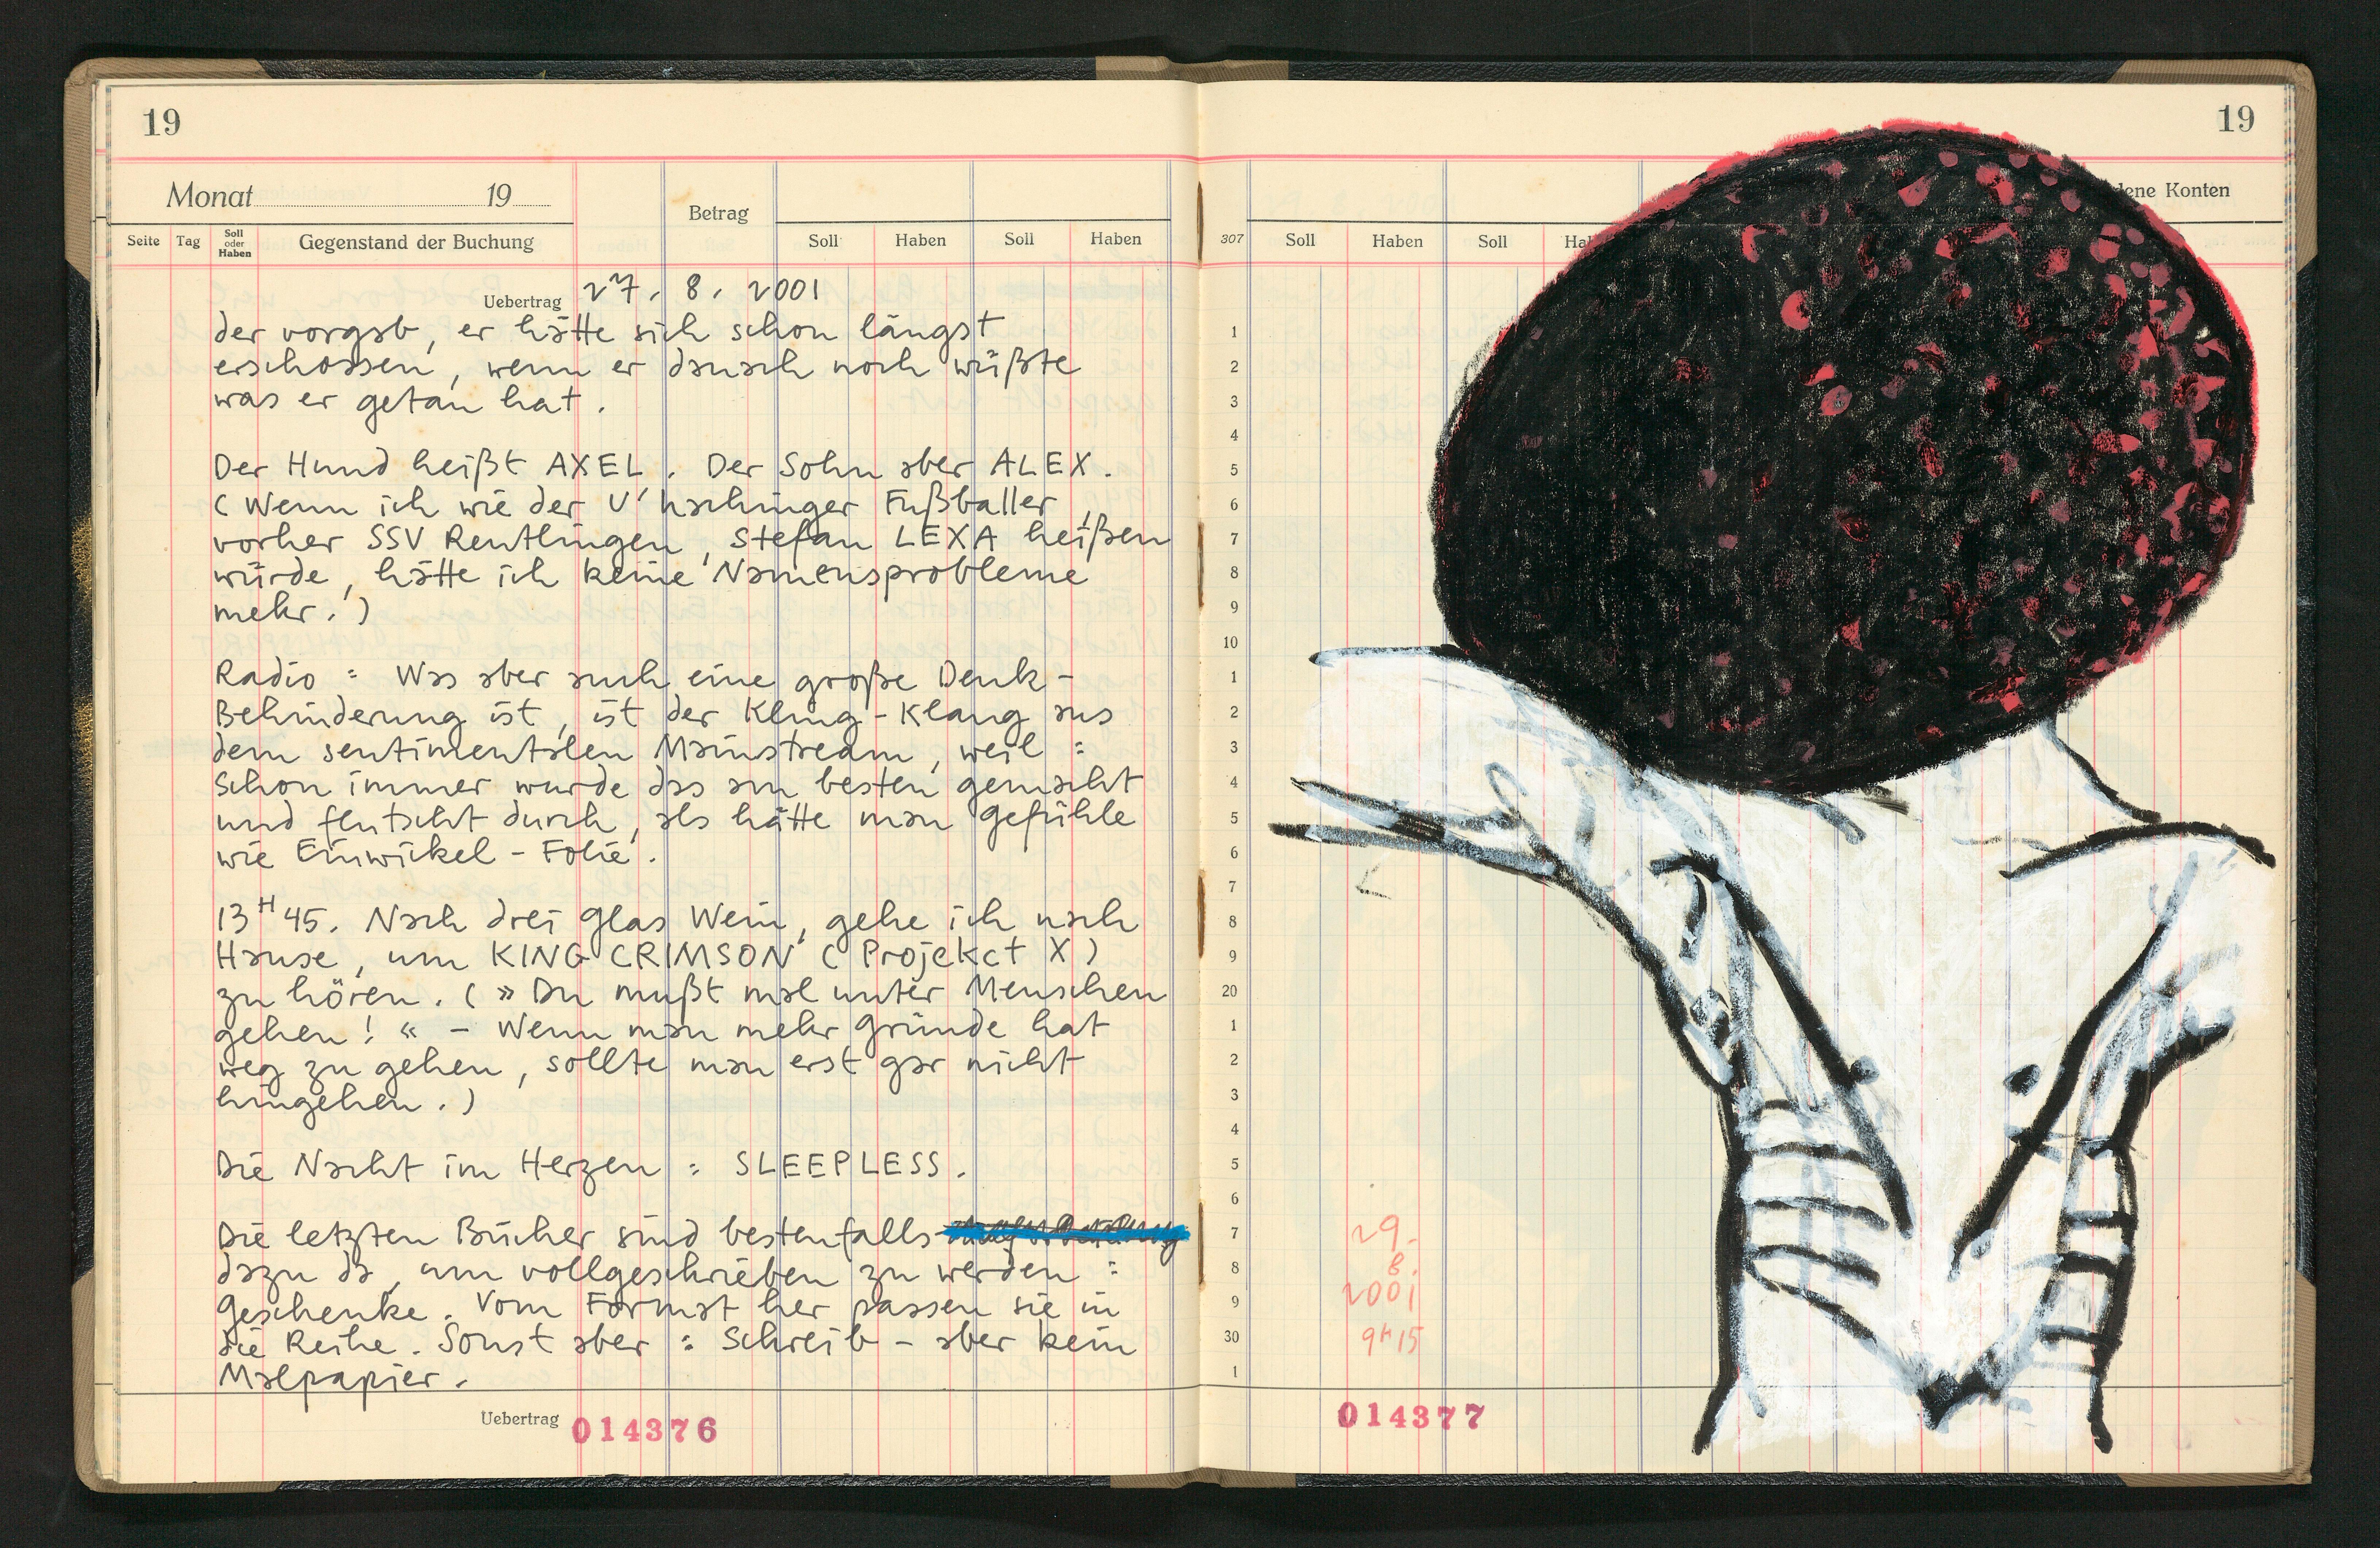 19
Monat 19
Betrag
Seite Tag Soll oder Haben Gegenstand der Buchung Soll Haben Soll Haben
Uebertrag 27. 8. 2001
der vorgab, er hätte sich schon längst
erschossen, wenn er danach noch wüßte
was er getan hat.
Der Hund heißt AXEL. Der Sohn aber ALEX.
(Wenn ich wie der U'hachinger Fußballer,
vorher SSV Reutlingen, Stefan LEXA heißen
würde, hätte ich keine Namensprobleme
mehr.)
Radio: Was aber auch eine große Denk-
Behinderung ist, ist der Kling-Klang aus
dem sentimentalen Mainstream, weil:
Schon immer wurde das am besten gemacht
und flutscht durch, als hätte man Gefühle
wie Einwickel-Folie.
13H45. Nach drei Glas Wein, gehe ich nach
Hause, um KING CRIMSON (Projekct X)
zu hören. (»Du mußt mal unter Menschen
gehen!« - Wenn man mehr Gründe hat
weg zu gehen, sollte man erst gar nicht
hingehen.)
Die Nacht im Herzen: SLEEPLESS.
Die letzten Bücher sind bestenfalls
dazu da, um vollgeschrieben zu werden:
Geschenke. Vom Format her passen sie in
die Reihe. Sonst aber: Schreib- aber kein
Malpapier.
Uebertrag 014376
19
dene Konten
307 Soll Haben Soll Ha
1
2
3
4
5
6
7
8
9
10
1
2
3
4
5
6
7
8
9
20
1
2
3
4
5
6
7
8
9
30
1
29.
8.
2001
9H15
014377